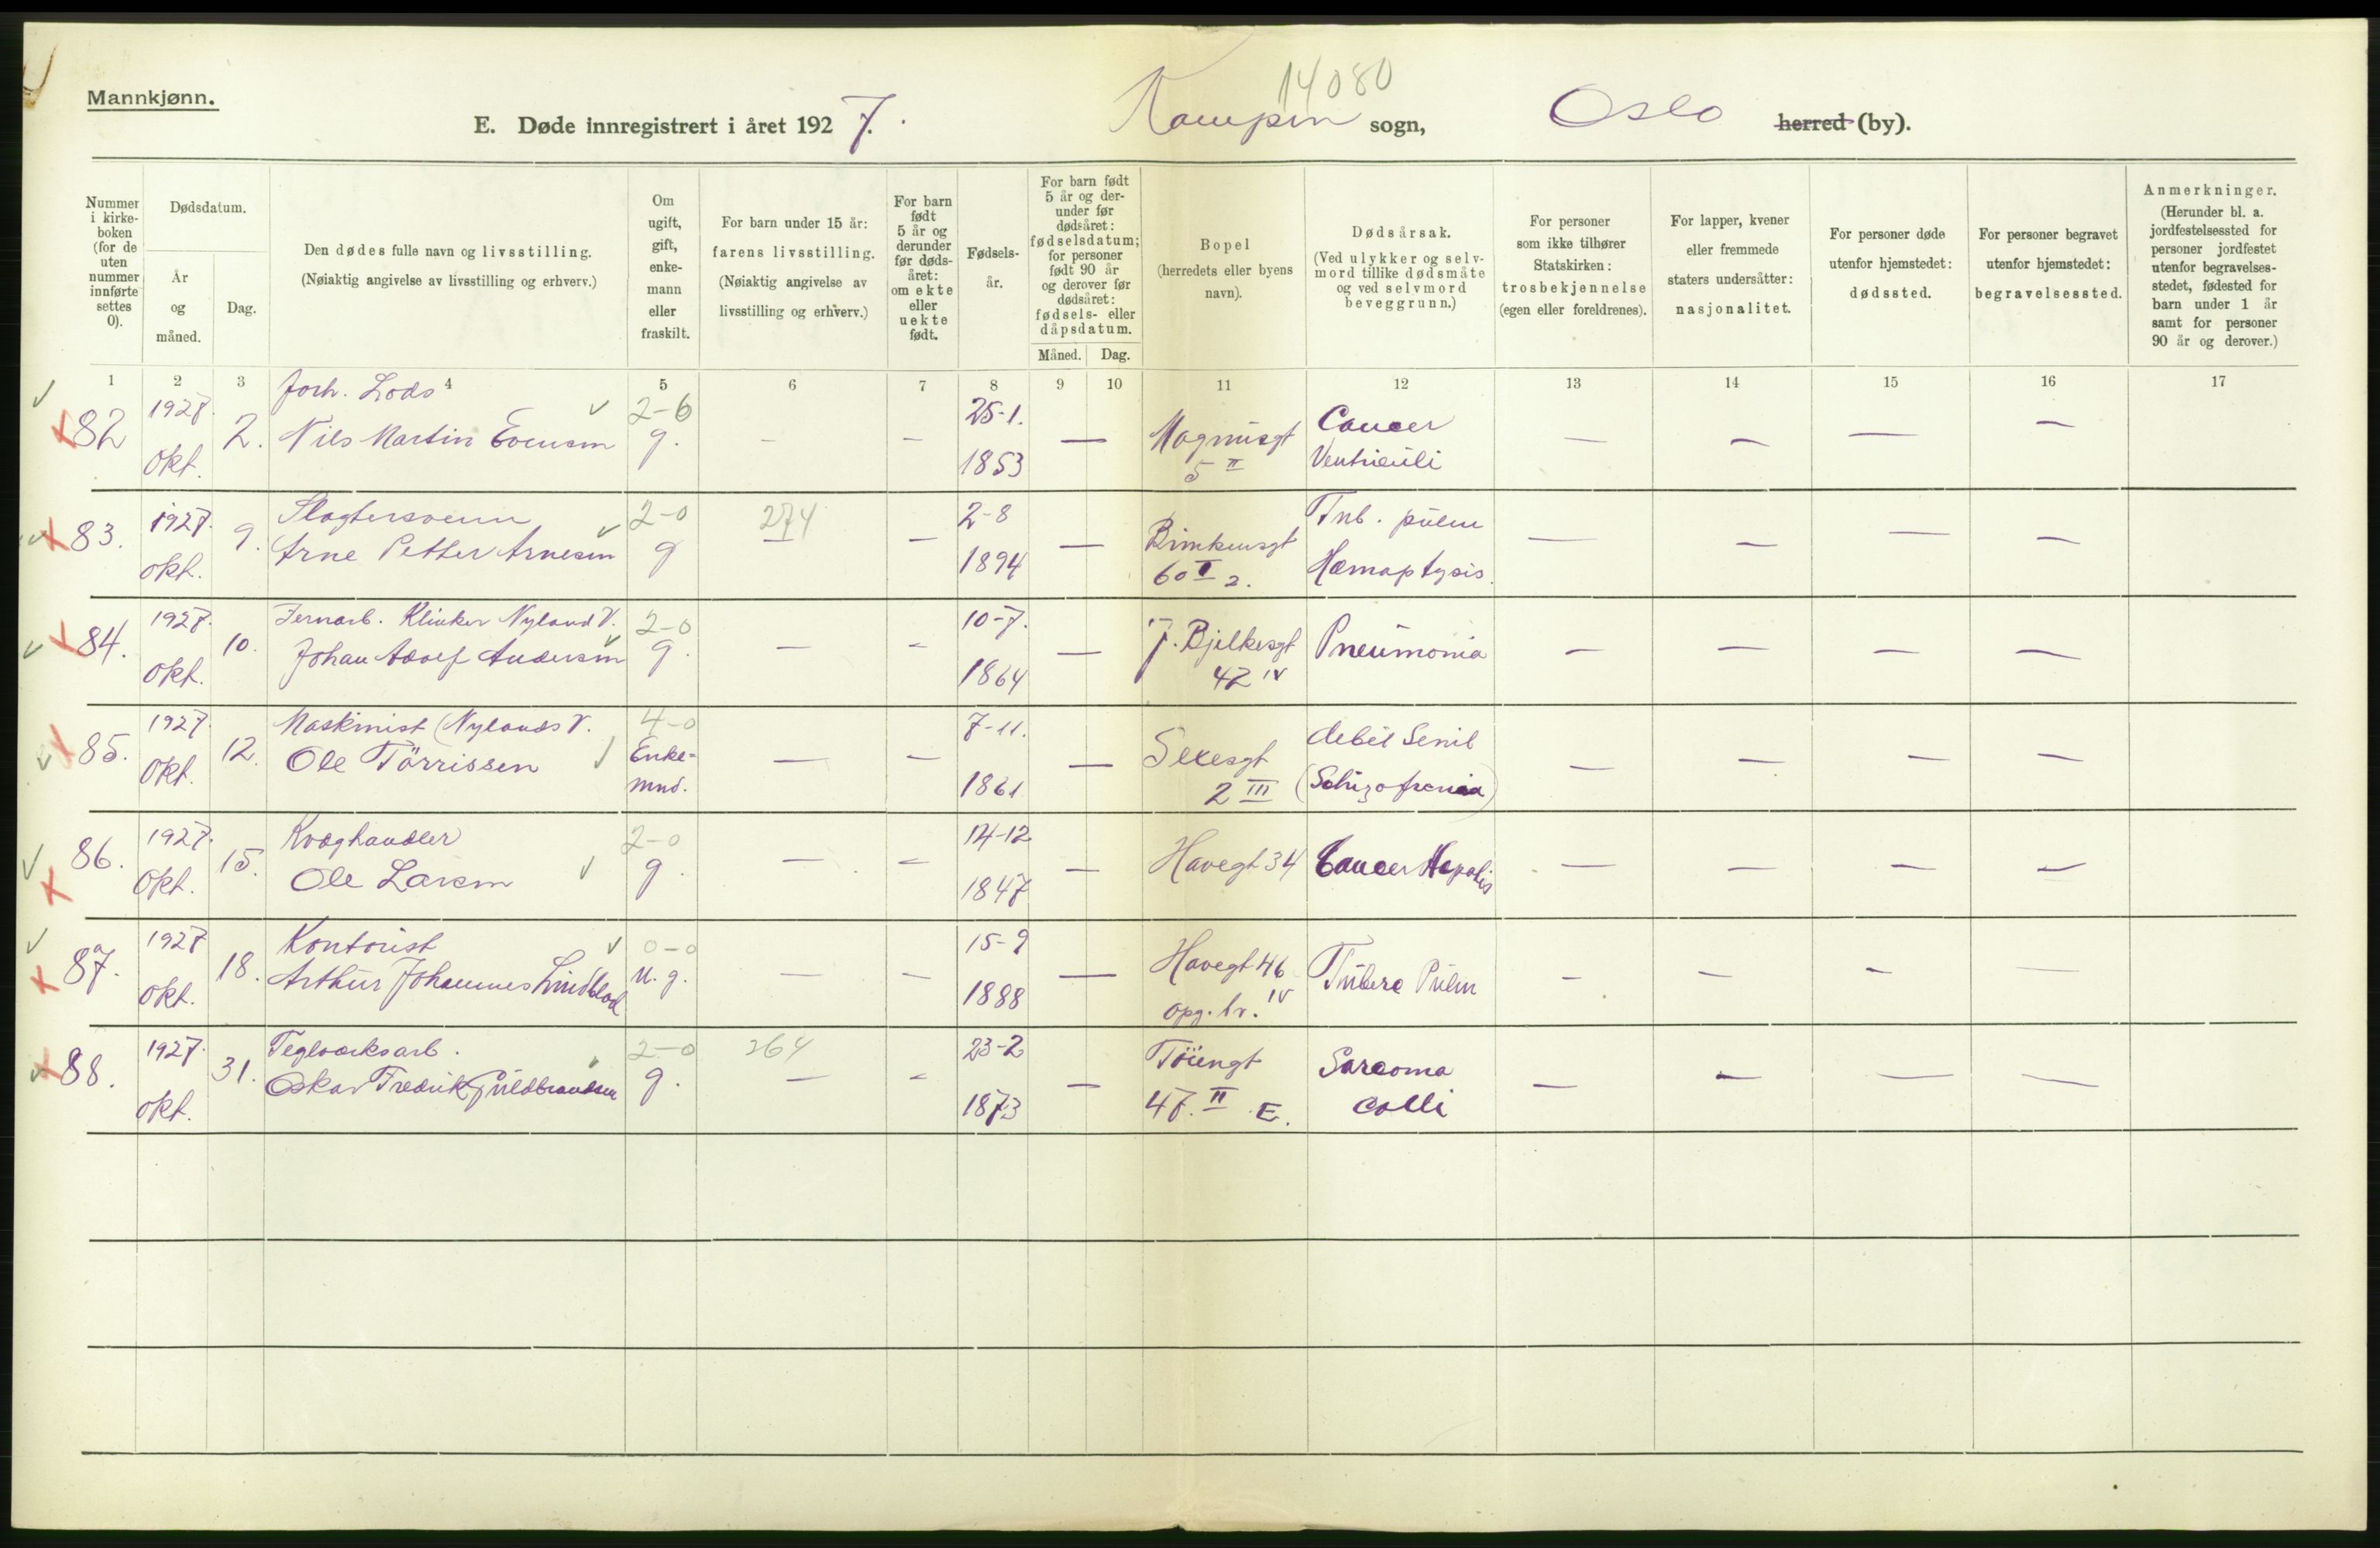 14080
Mannkjønn.
E. Døde innregistrert i året 1927. Kampen sogn, Oslo herred (by).
Nummer i kirkeboken (for de uten nummer innførte settes 0).
Dødsdatum.
År og måned.
Dag.
Den dødes fulle navn og livsstilling.
(Nøiaktig angivelse av livsstilling og erhverv.)
Om ugift, gift, enkemann eller fraskilt.
For barn under 15 år: farens livsstilling.
(Nøiaktig angivelse av livsstilling og erhverv.)
For barn født 5 år og derunder før dødsåret: om ekte eller uekte født.
Fødselsår.
For barn født 5 år og derunder før dødsåret: fødselsdatum; for personer født 90 år og derover før dødsåret: fødsels- eller dåpsdatum.
Måned. Dag.
Bopel
(herredets eller byens navn).
Dødsårsak.
(Ved ulykker og selvmord tillike dødsmåte og ved selvmord beveggrunn.)
For personer som ikke tilhører Statskirken: trosbekjennelse (egen eller foreldrenes).
For lapper, kvener eller fremmede staters undersåtter: nasjonalitet.
For personer døde utenfor hjemstedet: dødssted.
For personer begravet utenfor hjemstedet: begravelsessted.
Anmerkninger.
(Herunder bl. a. jordfestelsessted for personer jordfestet utenfor begravelsesstedet, fødested for barn under 1 år samt for personer 90 år og derover.)
1 2 3 4 5 6 7 8 9 10 11 12 13 14 15 16 17
82 1927. Okt. 2. Forh. Lods Nils Martin Evensen 2-6 g. - - 25-1. 1853 - Magnusgt 5 II Cancer Ventriculi - - - -
83. 1927. Okt. 9. Slagtersvenn Arne Petter Arnesen 2-0 g 274 - - 2-8 1894 - 60 I 2. Tub. pulm Hæmoptysis. - - - -
84. 1927. Okt. 10. Jernarb. Klinker Nyland V. Johan Adolf Andersen 2-0 g. - - 10-7. 1864 - J. Bjelkesgt 42 IV Pneumonia - - - -
85. 1927. Okt. 12. Maskinist (Nylands V. Ole Törrissen 4-0 Enkemnd. - - 7-11. 1861 - Sexesgt 2 III debil Senil (Schizofrenia) - - - -
86. 1927. Okt. 15. Kvæghandler Ole Larsen 2-0 g. - - 14-12 1847 - Havegt 34 Cancer Hepatis - - - -
87. 1927 Okt. 18. Kontorist Arthur Johannes Lindblad 0-0 u. g. - - 15-9 1888 - Havegt 46 opg. IV Pulm - - - -
88. 1927. Okt. 31. Teglværksarb. Oskar Fredrik Guldbrandsen 2-0 g. 264 - - 23-2 1873 - Töiengt 47. II E. Sarcoma Colli - - - -